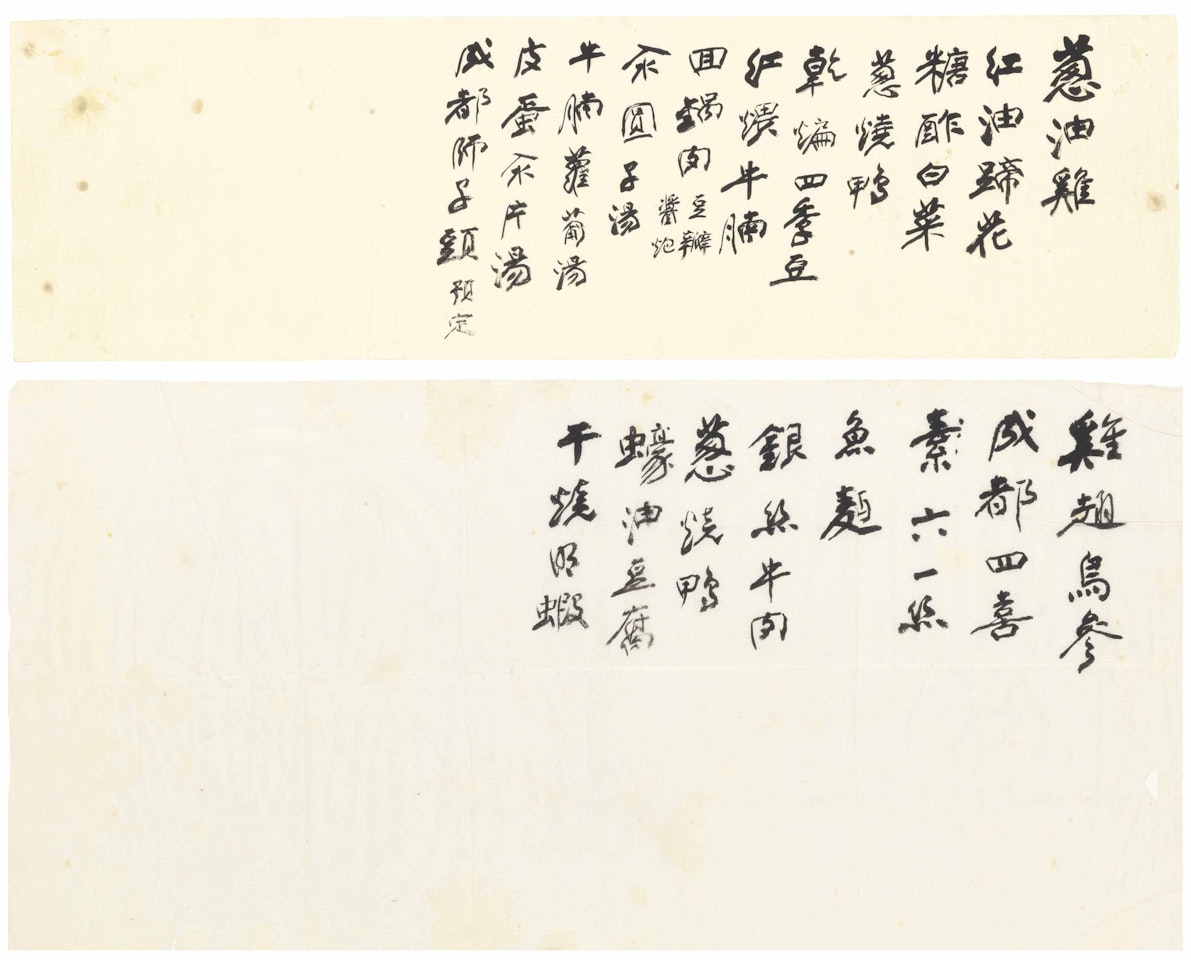 蔥油雞
紅油蹄花
糖酢白菜
蔥燒鴨
乾煸四季豆
紅煨牛腩
回鍋肉 豆瓣 醬炮
汆圓子湯
牛腩蘿蔔湯
皮蛋汆片湯
成都師子頭 預定
雞翅烏參
成都四喜
素六一絲
魚麵
銀絲牛肉
蔥燒鴨
蠔油豆腐
干燒明蝦